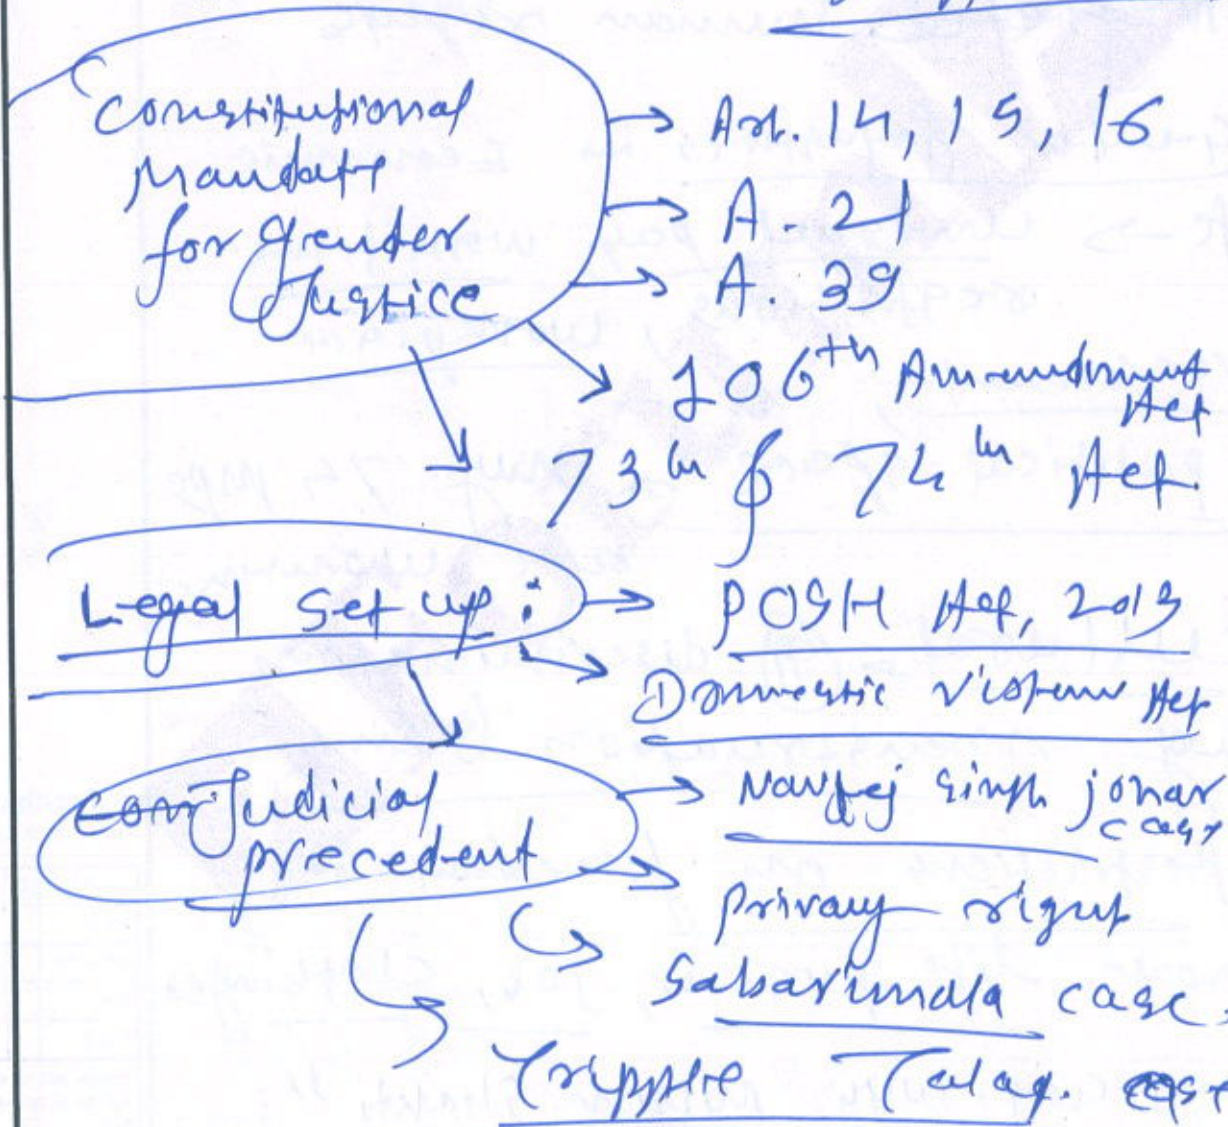 Constitutional
Mandate
for Gender
Justice
→ Art. 14, 15, 16
→ A. 21
→ A. 39
→ 106th Amendment
Act
→ 73rd & 74th Act.
Legal Set up :
→ POSH Act, 2013
→ Domestic Violence Act
Judicial
precedent
→ Navtej Singh Johar
case
→ Privacy right
→ Sabarimala case.
→ Tripple Talaq. case